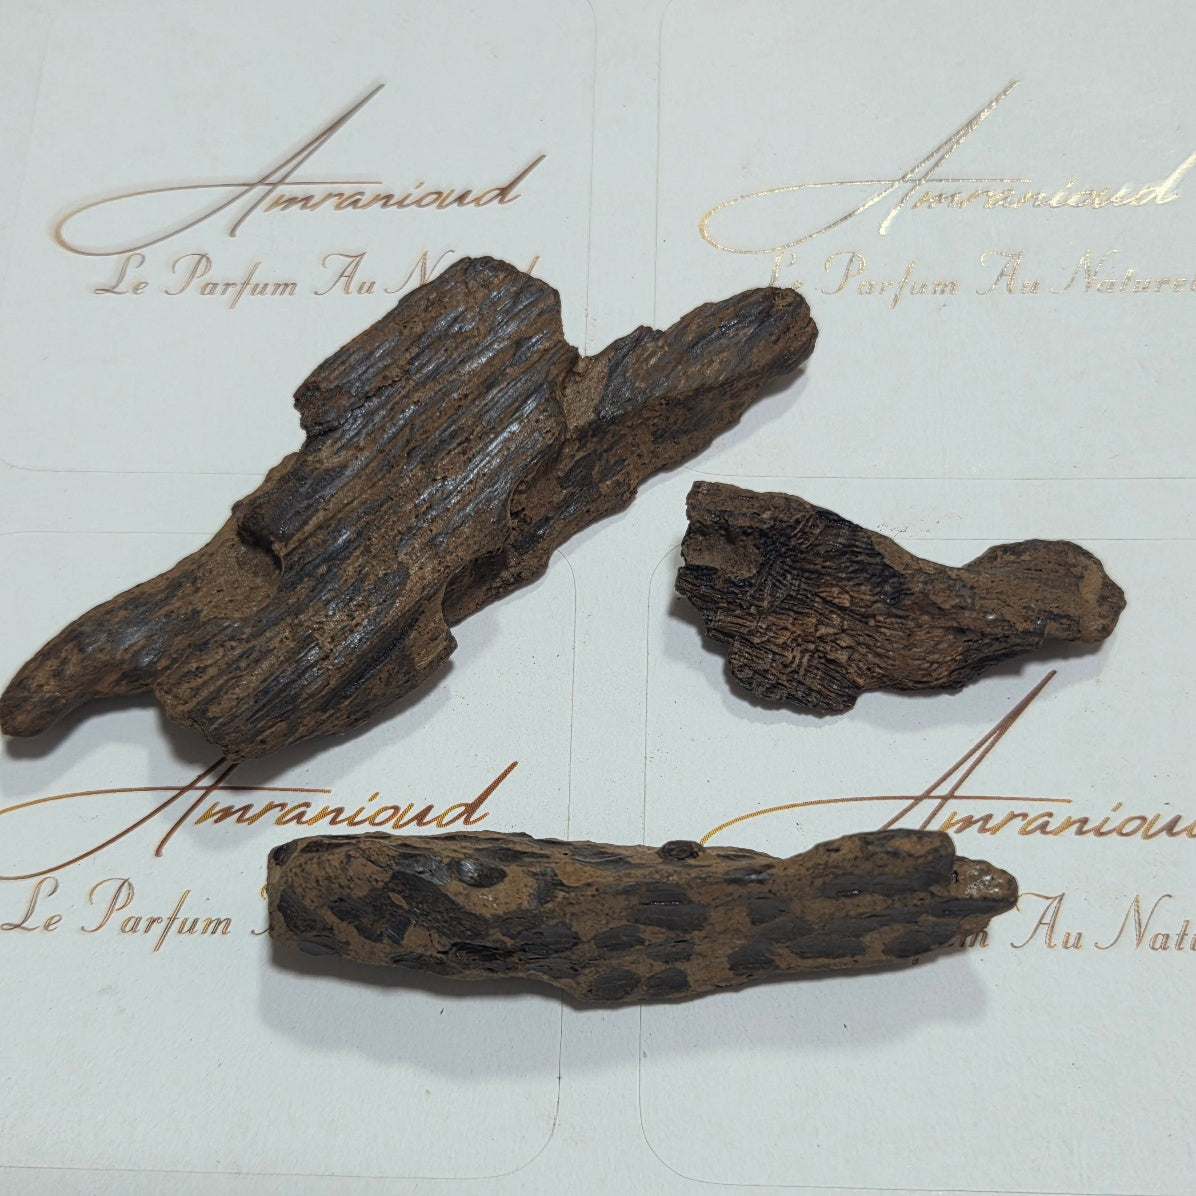 Amranioud
Le Parfum Au
Amranioud
Le Parfum Au Naturel
Amranioud
Le Parfum
Amranioud
Au